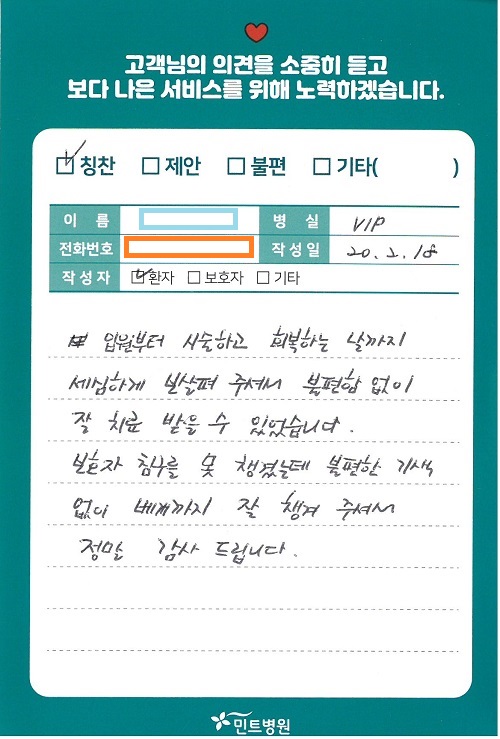 고객님의 의견을 소중히 듣고
보다 나은 서비스를 위해 노력하겠습니다.
칭찬 제안 불편 기타( )
이 름 병 실 VIP
전화번호 작성일 20.2.18
작성자 환자 보호자 기타
입원부터 시술하고 회복하는 날까지
세심하게 보살펴 주셔서 불편함 없이
잘 치료 받을 수 있었습니다.
보호자 침구를 못 챙겼는데 불편한 기색
없이 베개까지 잘 챙겨 주셔서
정말 감사 드립니다.
민트병원